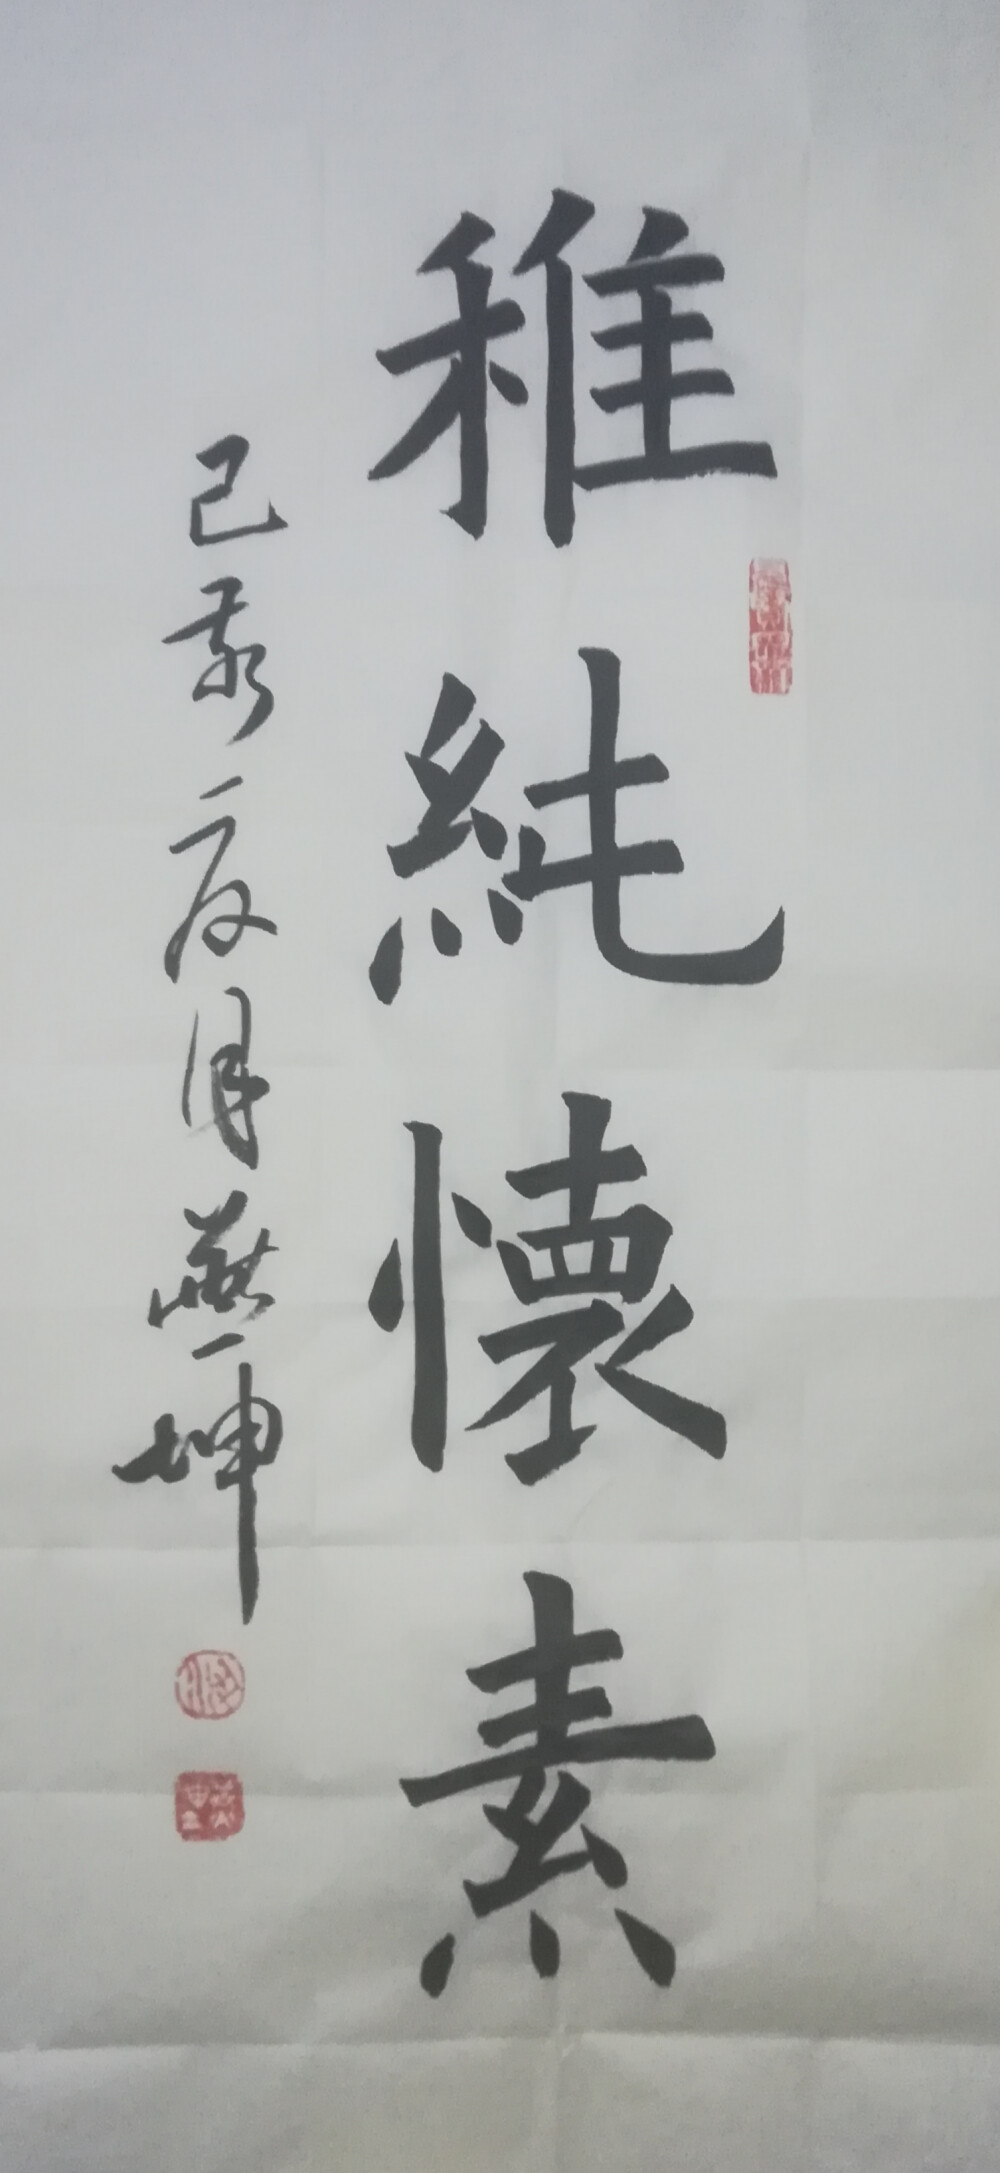 稚純懷素
己亥二月燕坤